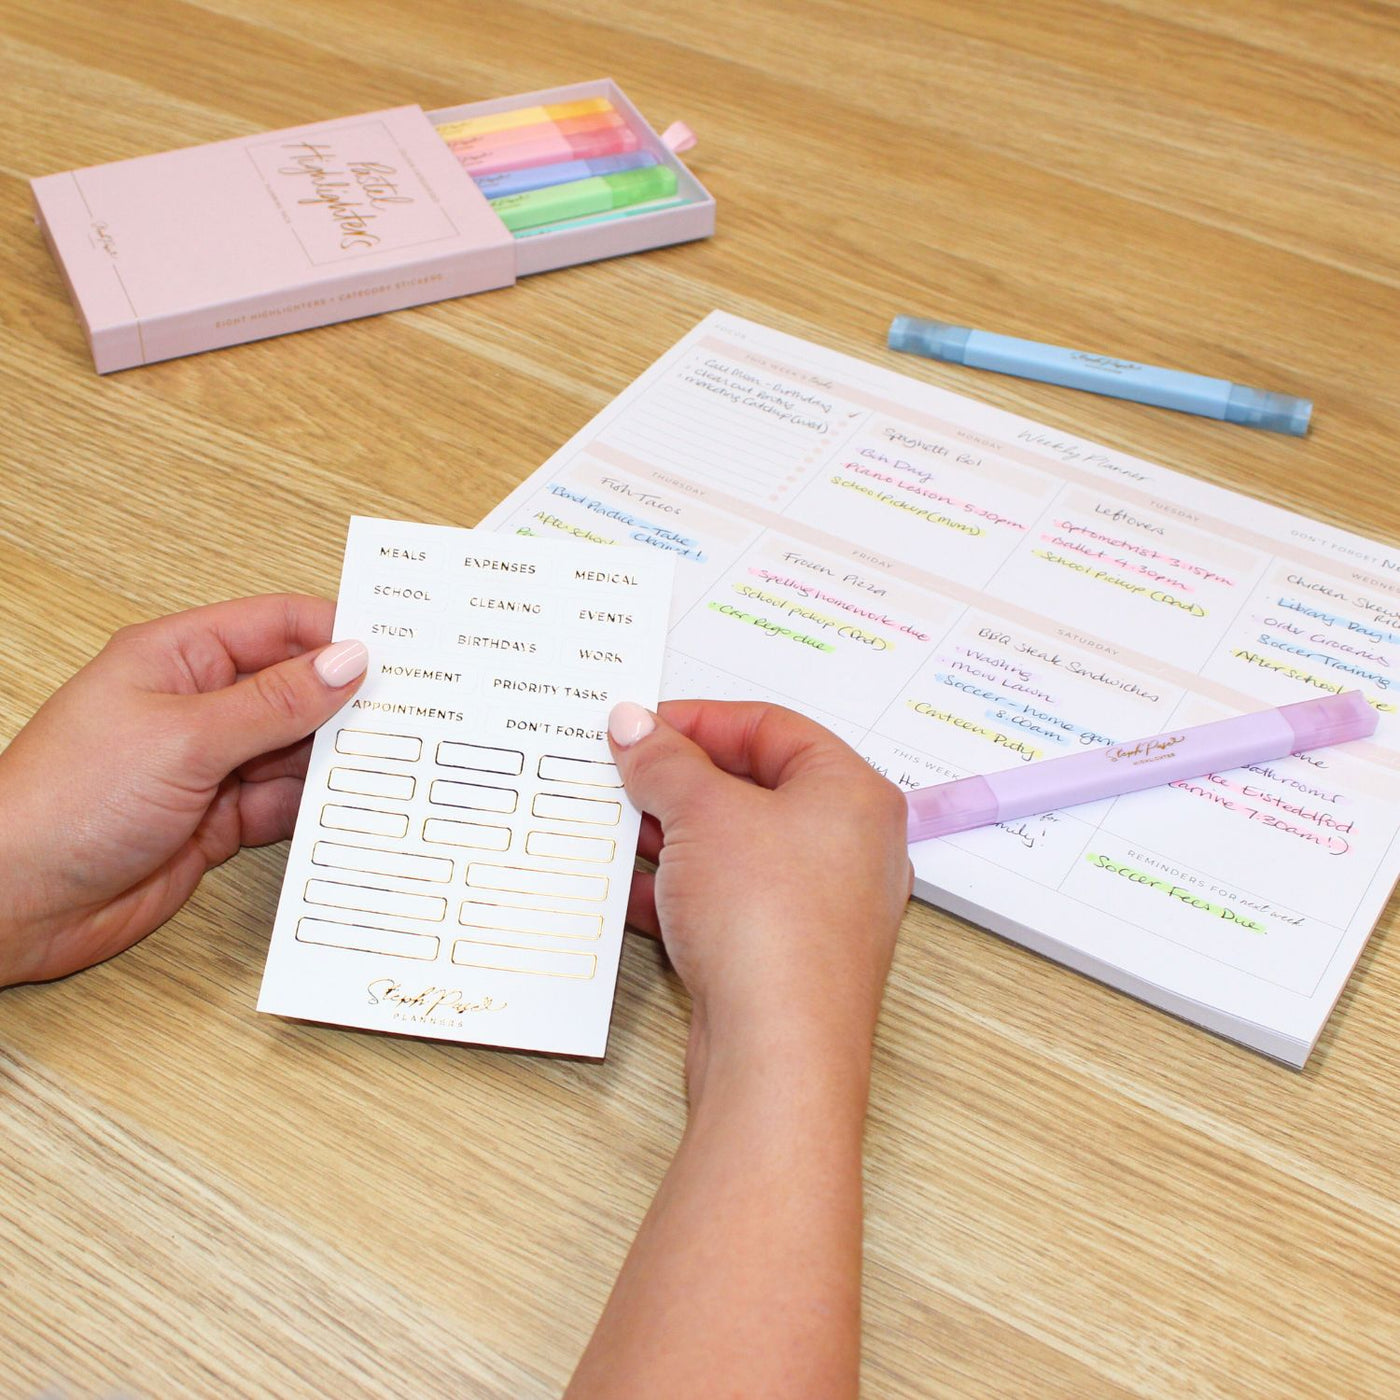 Pastel
Highlighters
Steph Pase
EIGHT HIGHLIGHTERS + CATEGORY STICKERS
Steph Pase
FOCUS
Weekly Planner
THIS WEEK'S tasks
Call Mom - Birthday
clean out Pantry
marketing Catchup (wed)
MONDAY
Spaghetti Bol
Bin Day
Piano Lesson 5.30pm
School Pickup (mum)
TUESDAY
Leftovers
Optometrist 3.15pm
Ballet 4.30pm
School Pickup (Dad)
DON'T FORGET
Chicken Skew
Library Day!
Order Groceries
Soccer Training
After School
THURSDAY
Fish Tacos
Band Practice - Take
Clarinet!
After School
FRIDAY
Frozen Pizza
Spelling homework due
School pickup (Dad)
Car Rego due
SATURDAY
BBQ Steak Sandwiches
Washing
Mow Lawn
Soccer - home gam
8.00am
Canteen Duty
Eisteddfod
arrive 7.30am!)
THIS WEEK
for
REMINDERS FOR next week
Soccer Fees Due.
Steph Pase
HIGHLIGHTER
MEALS
EXPENSES
MEDICAL
SCHOOL
CLEANING
EVENTS
STUDY
BIRTHDAYS
WORK
MOVEMENT
PRIORITY TASKS
APPOINTMENTS
DON'T FORGET
Steph Pase
PLANNERS